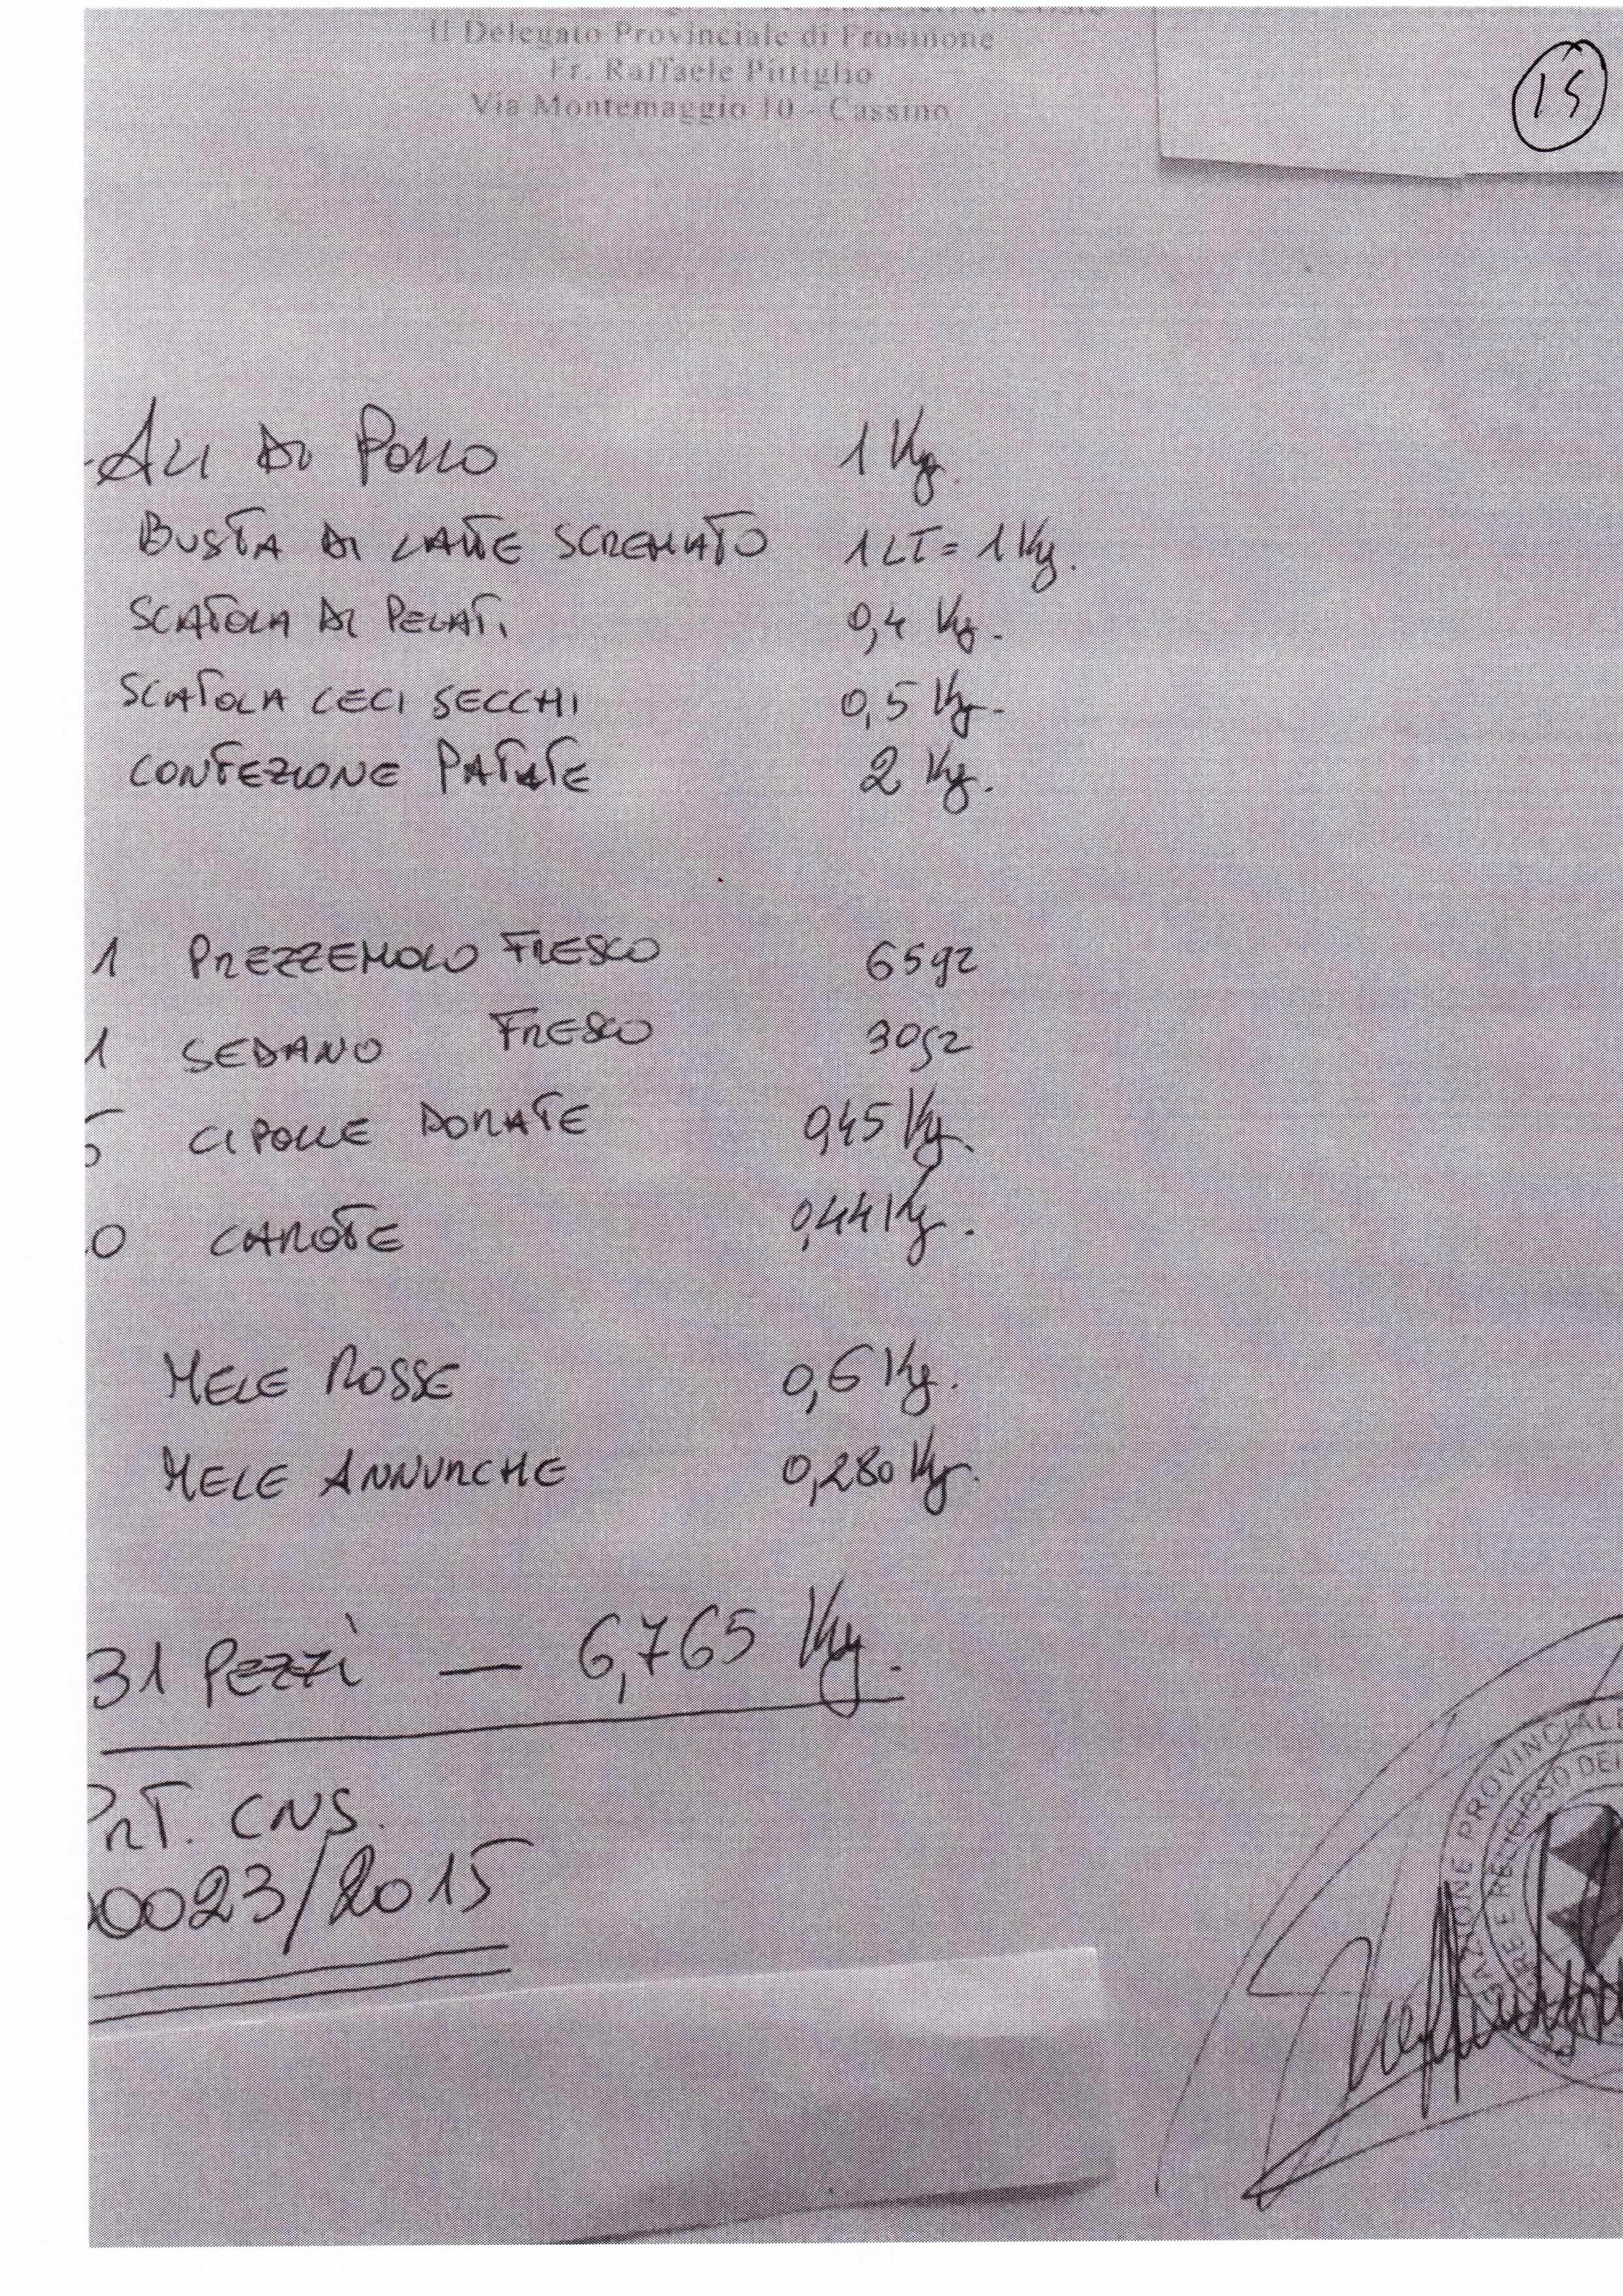 Il Delegato Provinciale di Frosinone
Fr. Raffaele Pittiglio
Via Montemaggio 10 - Cassino
15
- ALI DI POLLO 1 Kg.
BUSTA DI LATTE SCREMATO 1 LT = 1 Kg.
SCATOLA DI PELATI 0,4 Kg.
SCATOLA CECI SECCHI 0,5 Kg.
CONFEZIONE PATATE 2 Kg.
1 PREZZEMOLO FRESCO 65gr
1 SEDANO FRESCO 30gr
5 CIPOLLE DORATE 0,45 Kg.
0 CAROTE 0,44 Kg.
MELE ROSSE 0,6 Kg.
MELE ANNURCHE 0,280 Kg.
31 PEZZI — 6,765 Kg.
PRT. CNS.
00023/2015
PROVINCIALE
DEI